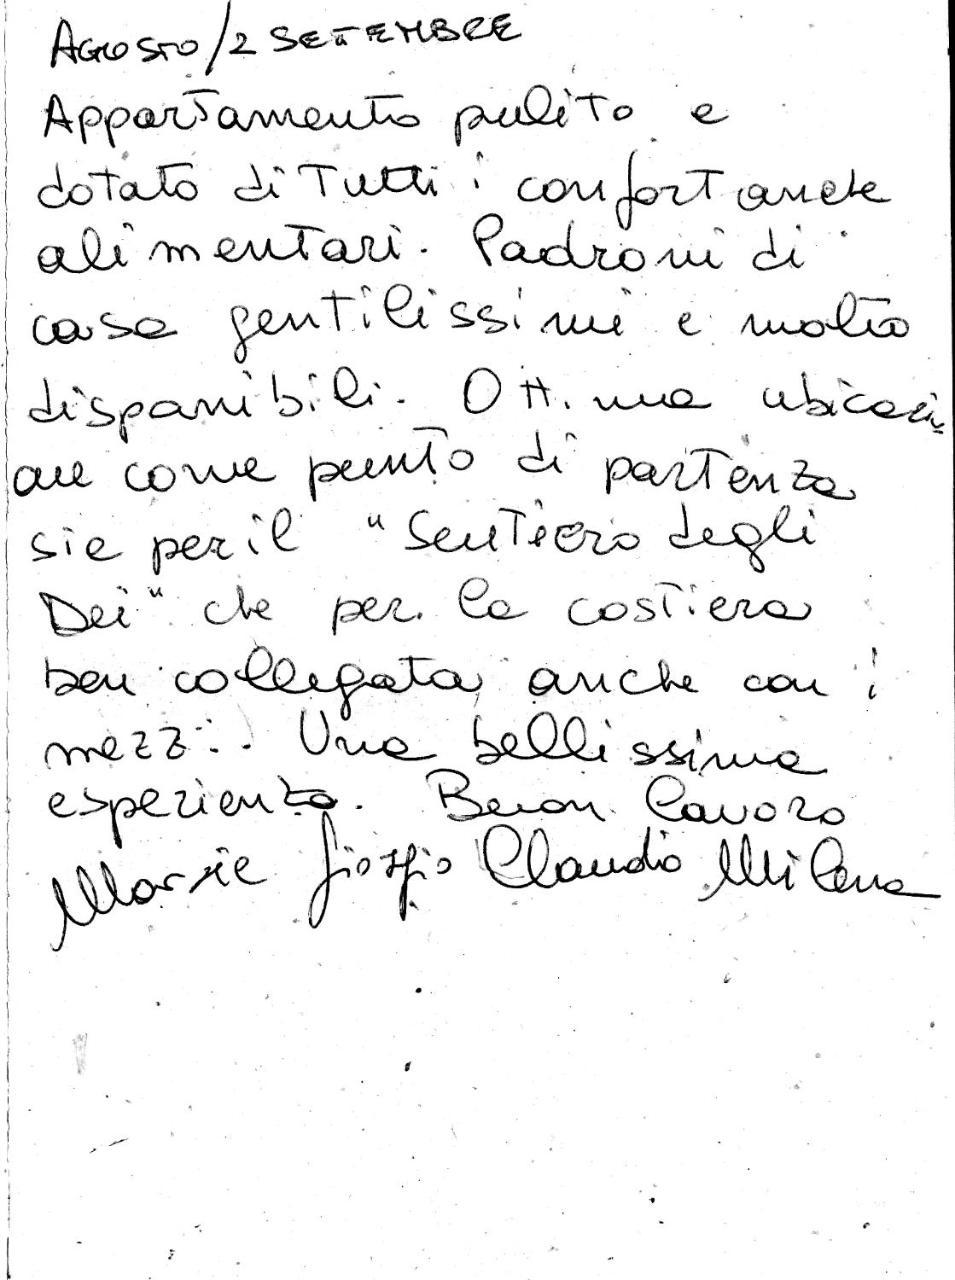 AGOSTO/2 SETTEMBRE
Appartamento pulito e
dotato di tutti i confort anche
alimentari. Padroni di
casa gentilissimi e molto
disponibili. Ottima ubicazi
one come punto di partenza
sia per il "Sentiero degli
Dei" che per la costiera
ben collegata anche con i
mezzi. Una bellissima
esperienza. Buon lavoro
Maria Giorgio Claudio Milena